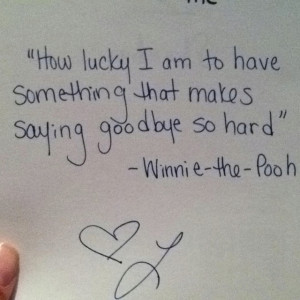 me
"How lucky I am to have
something that makes
saying goodbye so hard"
- Winnie-the-Pooh
♡ L